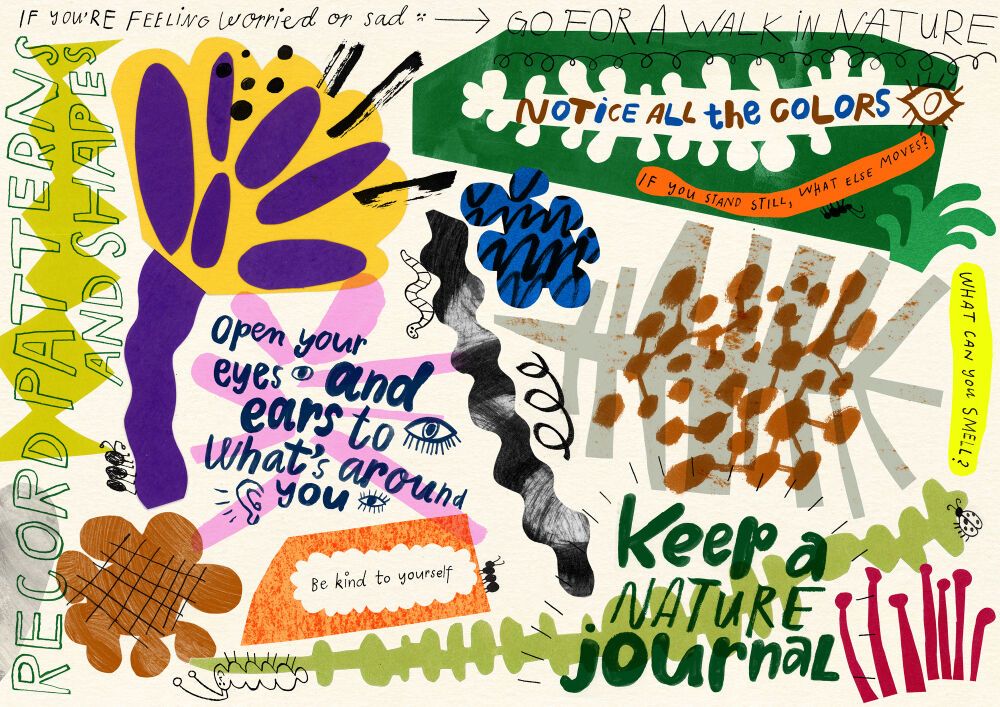 IF YOU'RE FEELING worried or sad :~ → GO FOR A WALK in NATURE
RECORD PATTERNS
AND SHAPES
NOTICE ALL the COLORS
IF YOU STAND STILL, WHAT ELSE MOVES?
WHAT CAN YOU SMELL?
Open your
eyes and
ears to
What's around
you
Be kind to yourself
Keep a
NATURE
journal